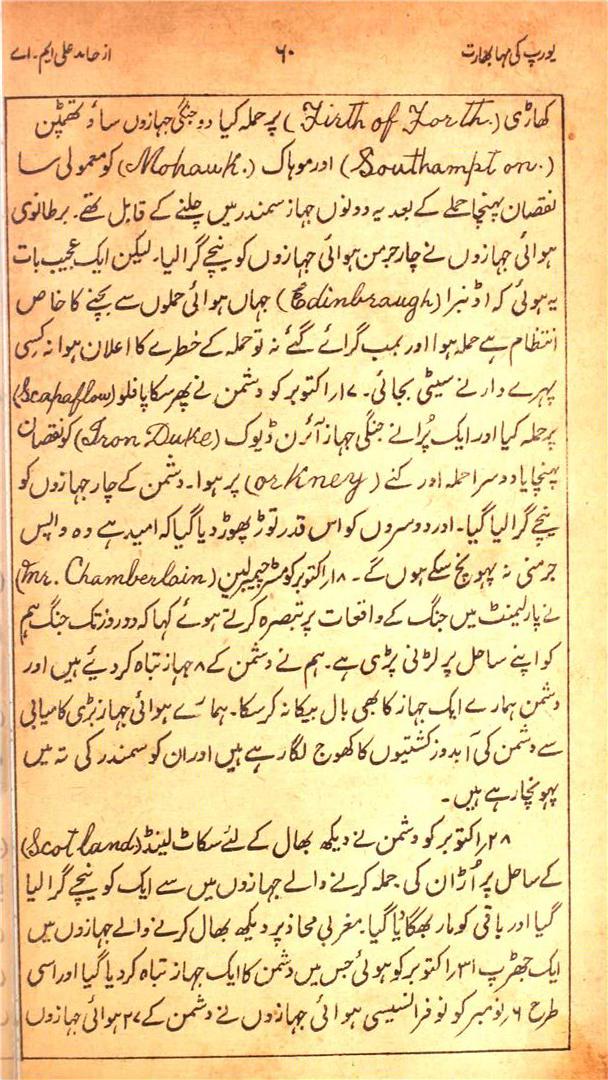 یورپ کی مہا بھارت ۶۰ از حامد علی ایم۔ اے
کھاڑی (Firth of Forth.) پر حملہ کیا دو جنگی جہازوں ساؤتھمپٹن
(Southampton.) اور موہاک (Mohawk.) کو معمولی سا
نقصان پہنچا حملے کے بعد یہ دونوں جہاز سمندر میں چلنے کے قابل تھے۔ برطانوی
ہوائی جہازوں نے چار جرمن ہوائی جہازوں کو نیچے گرا لیا۔ لیکن ایک عجیب بات
یہ ہوئی کہ اڈنبرا (Edinbraugh) جہاں ہوائی حملوں سے بچنے کا خاص
انتظام ہے حملہ ہوا اور بمب گرائے گئے نہ تو حملہ کے خطرے کا اعلان ہوا نہ کسی
پہرے دار نے سیٹی بجائی۔ ۱۷ اکتوبر کو دشمن نے پھر سکاپا فلو (Scapaflow)
پر حملہ کیا اور ایک پُرانے جنگی جہاز آئرن ڈیوک (Iron Duke) کو نقصان
پہنچایا دوسرا حملہ اور کنے (orkney) پر ہوا۔ دشمن کے چار جہازوں کو
نیچے گرا لیا گیا۔ اور دوسروں کو اس قدر توڑ پھوڑ دیا گیا کہ امید ہے وہ واپس
جرمنی نہ پہونچ سکے ہوں گے۔ ۱۸ اکتوبر کو مسٹر چیمبرلین (Mr. Chamberlain)
نے پارلیمنٹ میں جنگ کے واقعات پر تبصرہ کرتے ہوئے کہا کہ دو روز تک جنگ ہم
کو اپنے ساحل پر لڑنی پڑی ہے۔ ہم نے دشمن کے ۸ جہاز تباہ کر دیئے ہیں اور
دشمن ہمارے ایک جہاز کا بھی بال بیکا نہ کر سکا۔ ہمارے ہوائی جہاز بڑی کامیابی
سے دشمن کی آبدوز کشتیوں کا کھوج لگا رہے ہیں اور ان کو سمندر کی تہ میں
پہونچا رہے ہیں۔
۲۸ اکتوبر کو دشمن نے دیکھ بھال کے لئے سکاٹ لینڈ (Scotland)
کے ساحل پر اُڑان کی حملہ کرنے والے جہازوں میں سے ایک کو نیچے گرا لیا
گیا اور باقی کو مار بھگایا گیا۔ مغربی محاذ پر دیکھ بھال کرنے والے جہازوں میں
ایک جھڑپ ۳۱ اکتوبر کو ہوئی جس میں دشمن کا ایک جہاز تباہ کر دیا گیا اور اسی
طرح ۶ نومبر کو نو فرانسیسی ہوائی جہازوں نے دشمن کے ۲۷ ہوائی جہازوں